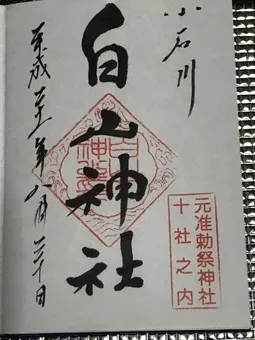 小石川
白山神社
元准勅祭神社
十社之内
平成二十一年八月三十日